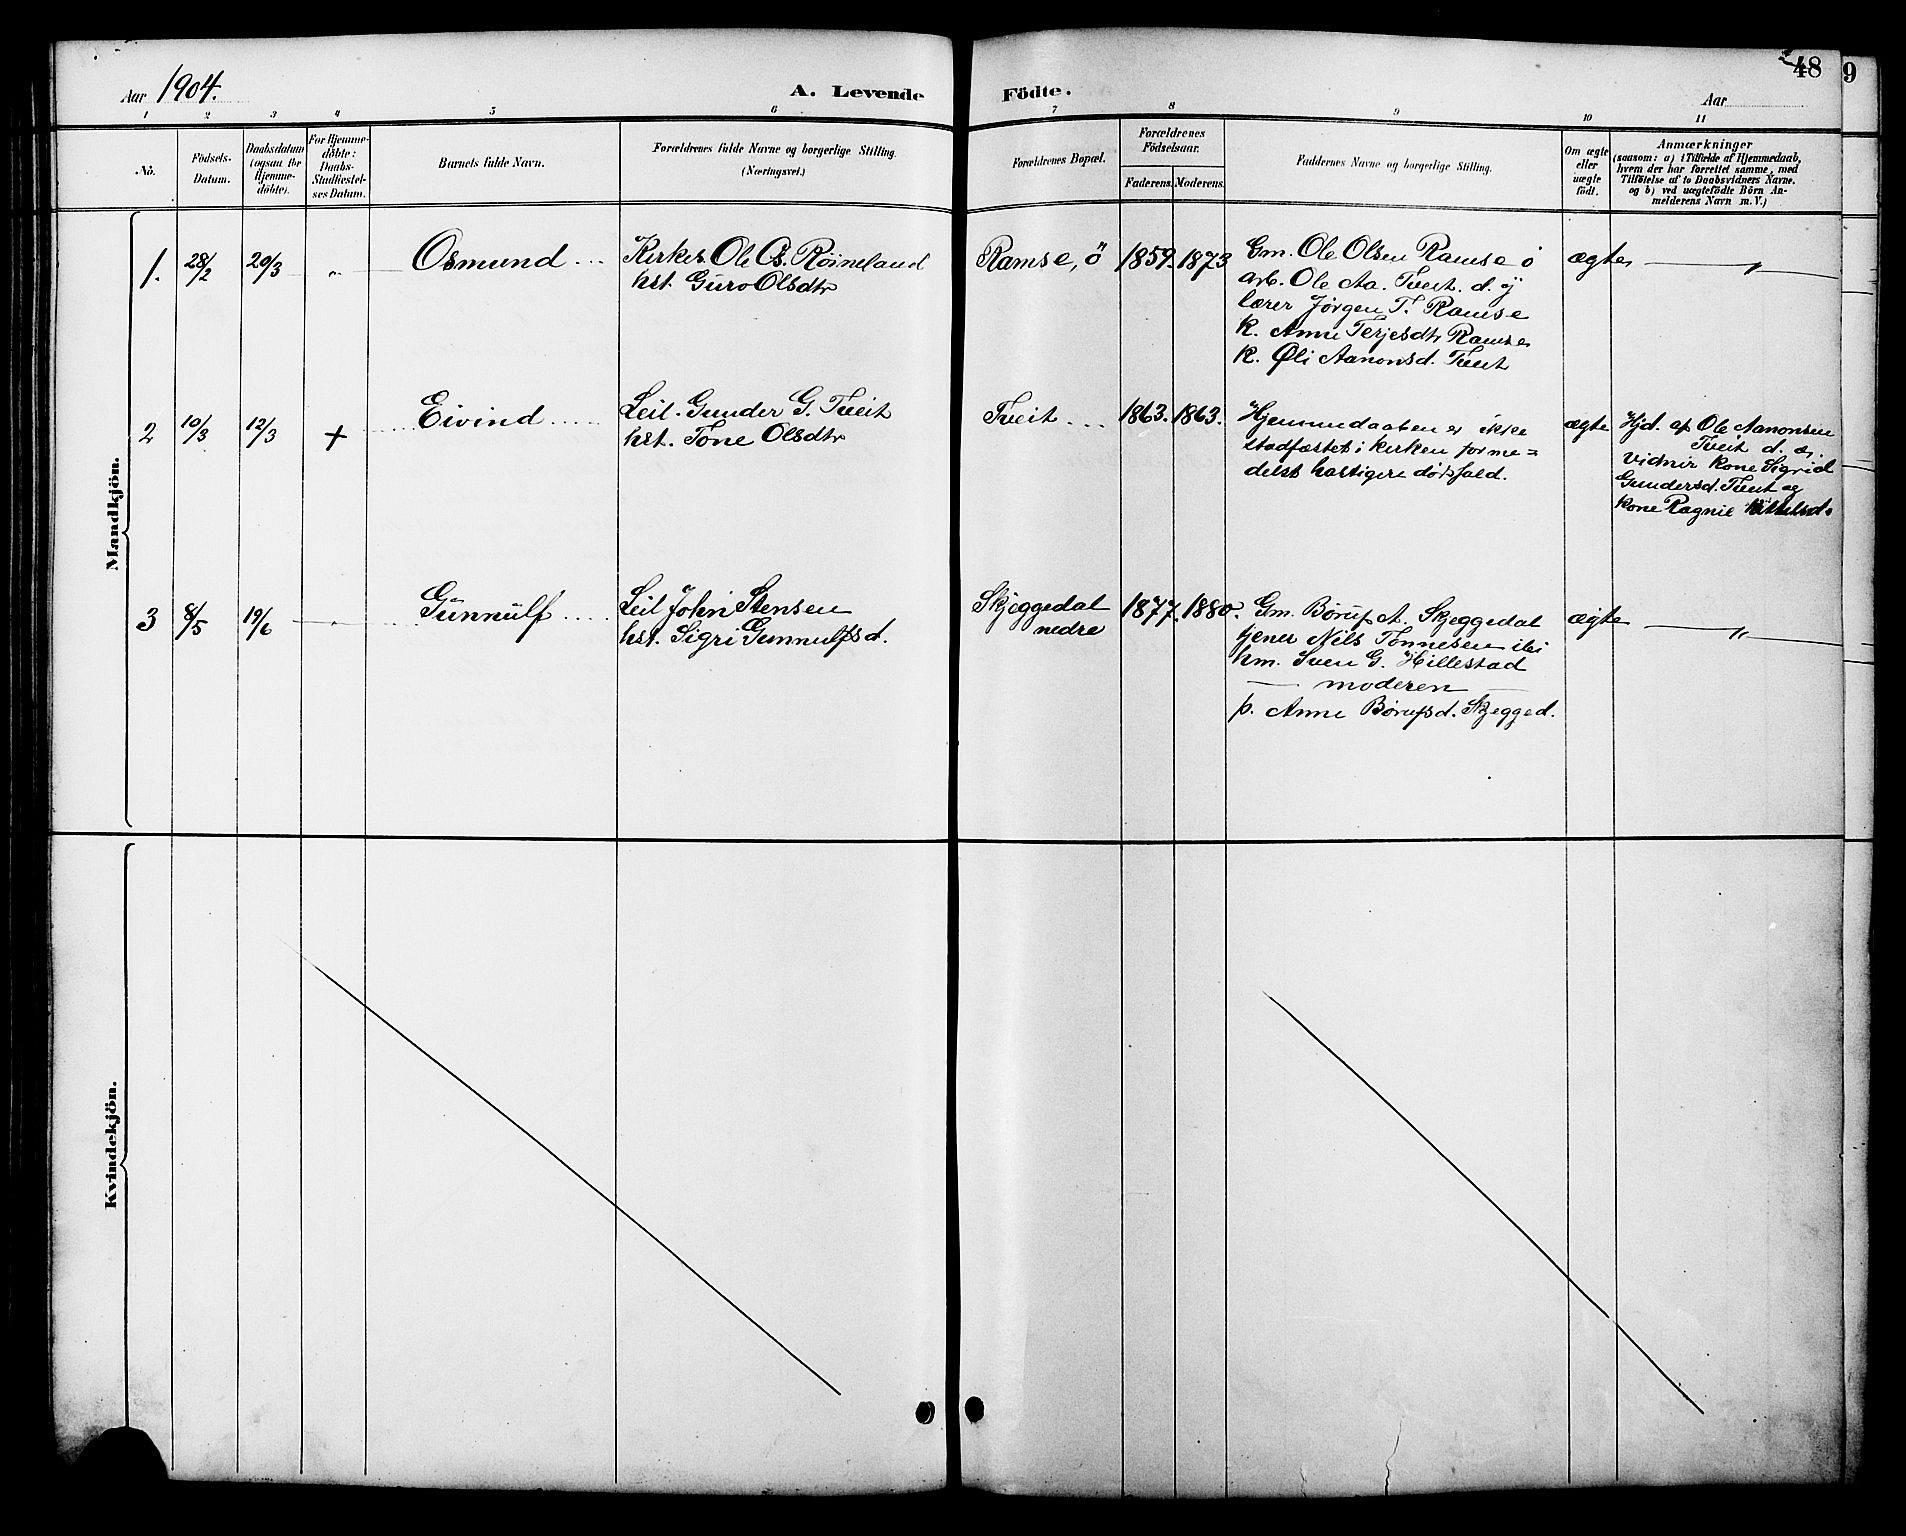 48
9
Aar 1904.
A. Levende Födte.
Aar
1 2 3 4 5 6 7 8 9 10 11
No.
Födsels-
Datum.
Daabsdatum
(ogsaa for
Hjemme-
döbte).
For Hjemme-
döbte:
Daabs-
Stadfæstel-
ses Datum.
Barnets fulde Navn.
Forældrenes fulde Navne og borgerlige Stilling.
(Næringsvei.)
Forældrenes Bopæl.
Forældrenes
Födselsaar.
Faderens. Moderens.
Faddernes Navne og borgerlige Stilling.
Om ægte
eller
uægte
födt.
Anmærkninger
(saasom: a) i Tilfælde af Hjemmedaab,
hvem der har forrettet samme, med
Tilföielse af to Daabsvidners Navne.
og b) ved uægtefödte Börn An-
melderens Navn m. V.)
Mandkjön.
1. 28/2 20/3 „ Osmund
Kirkes. Ole Os. Röineland
hst. Guro Olsdtr
Ramse, ö 1859. 1873
Gm. Ole Olsen Ramse ö
arb. Ole Aa. Tveit. d. y
lærer Jørgen T. Ramse
K. Anne Terjesdtr Ramse
K. Øli Aanonsd. Tveit
ægte „
2 10/3 12/3 + Eivind
Leil. Gunder G. Tveit
hst. Tone Olsdtr
Tveit 1863. 1863.
Hjemmedaaben er ikke
stadfæstet i kirken forme=
delst hastigere dødsfald.
ægte
Hjd. af Ole Aanonsen
Tveit d. æ.
Vidnir kone Sigrid
Gundersd. Tveit og
kone Ragnil
3 8/5 19/6 „ Gunnulf
Leil John Stensen
hst. Sigri Gunnulfsd.
Skjeggedal
nedre
1877. 1880.
Gm. Børuf A. Skjeggedal
tjener Nils Tønnesen ibi
hm. Sven G. Hillestad
— moderen —
p. Anne Børufsd. Skjegged.
ægte „
Kvindekjön.